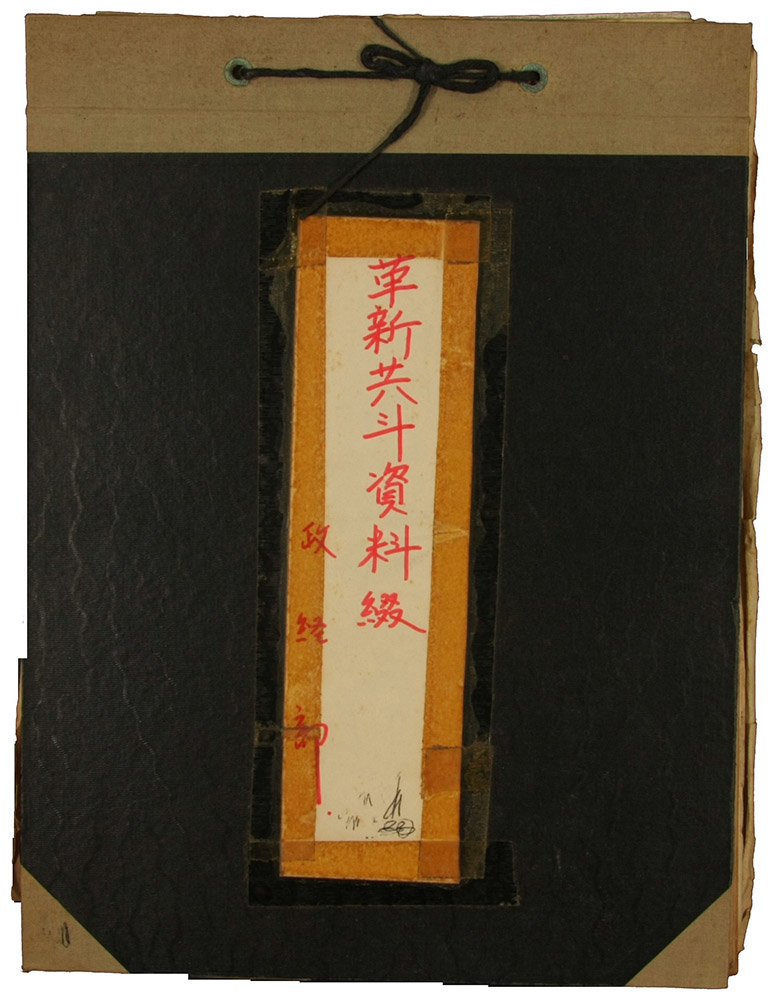 革新共斗資料綴
政経部